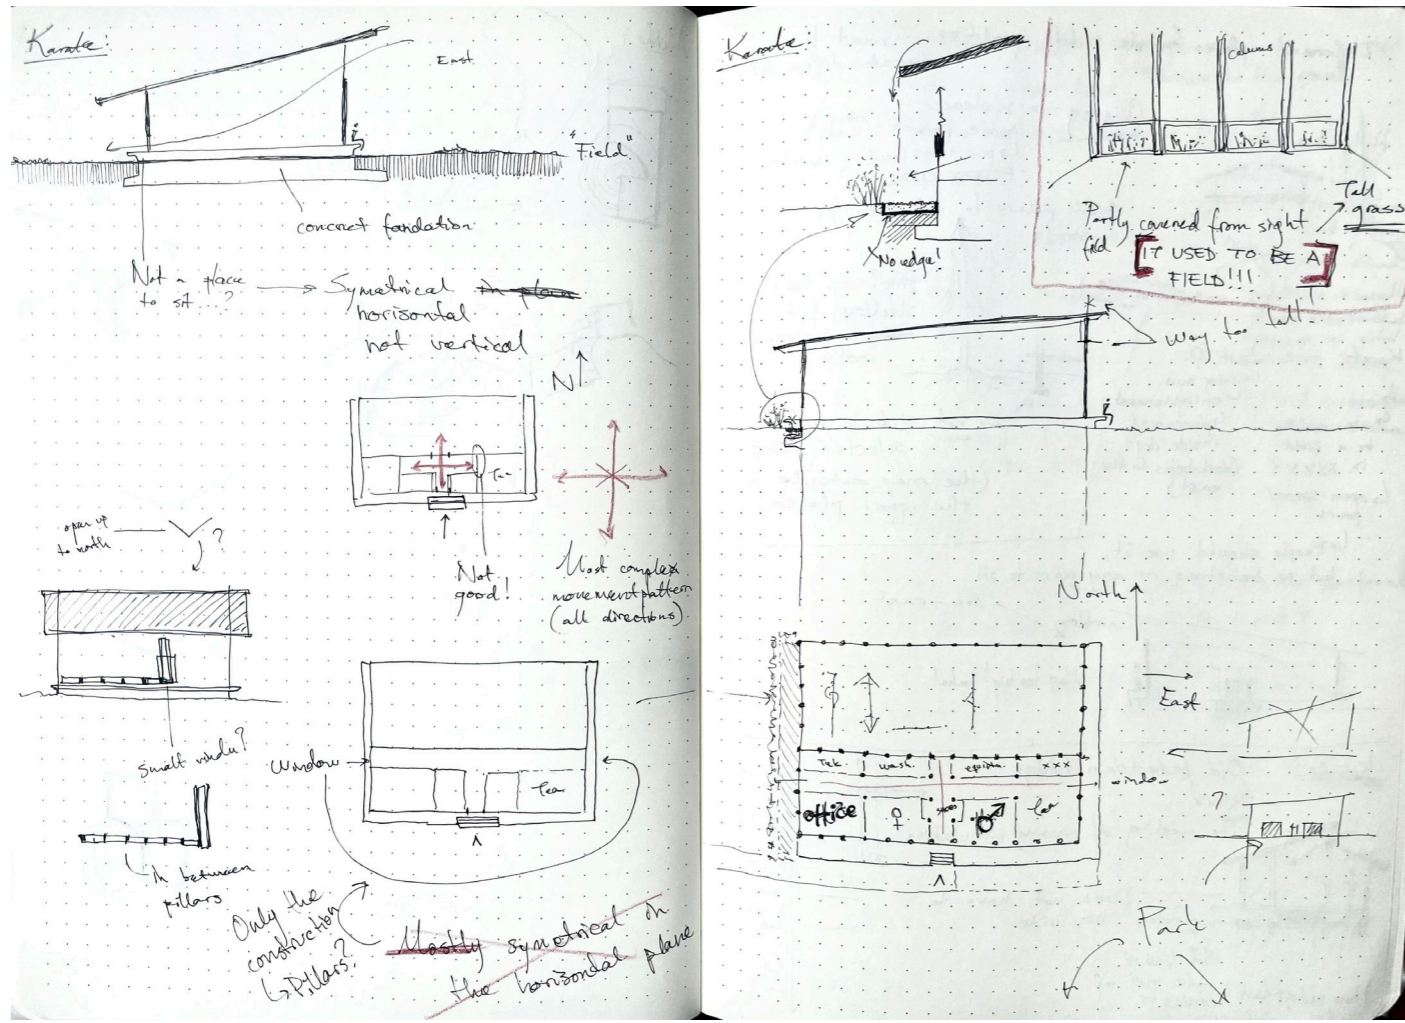 Karate:
East
"Field"
concret fondation
Not a place
to sit..?
Symetrical in plan
horizontal
not vertical
N
Tea
open up
to north
?
Not
good!
Most complex
movement pattern
(all directions).
small window?
Window
Tea
in between
pillars
Only the
construction
↳ Pillars?
Mostly symetrical in
the horizontal plane
Karate:
columns
No edge!
Partly covered from sight
field
Tall
grass
[IT USED TO BE A
FIELD!!!]
way too tall!
North
East
wash
xxx
window
office
♀
♂
?
Park